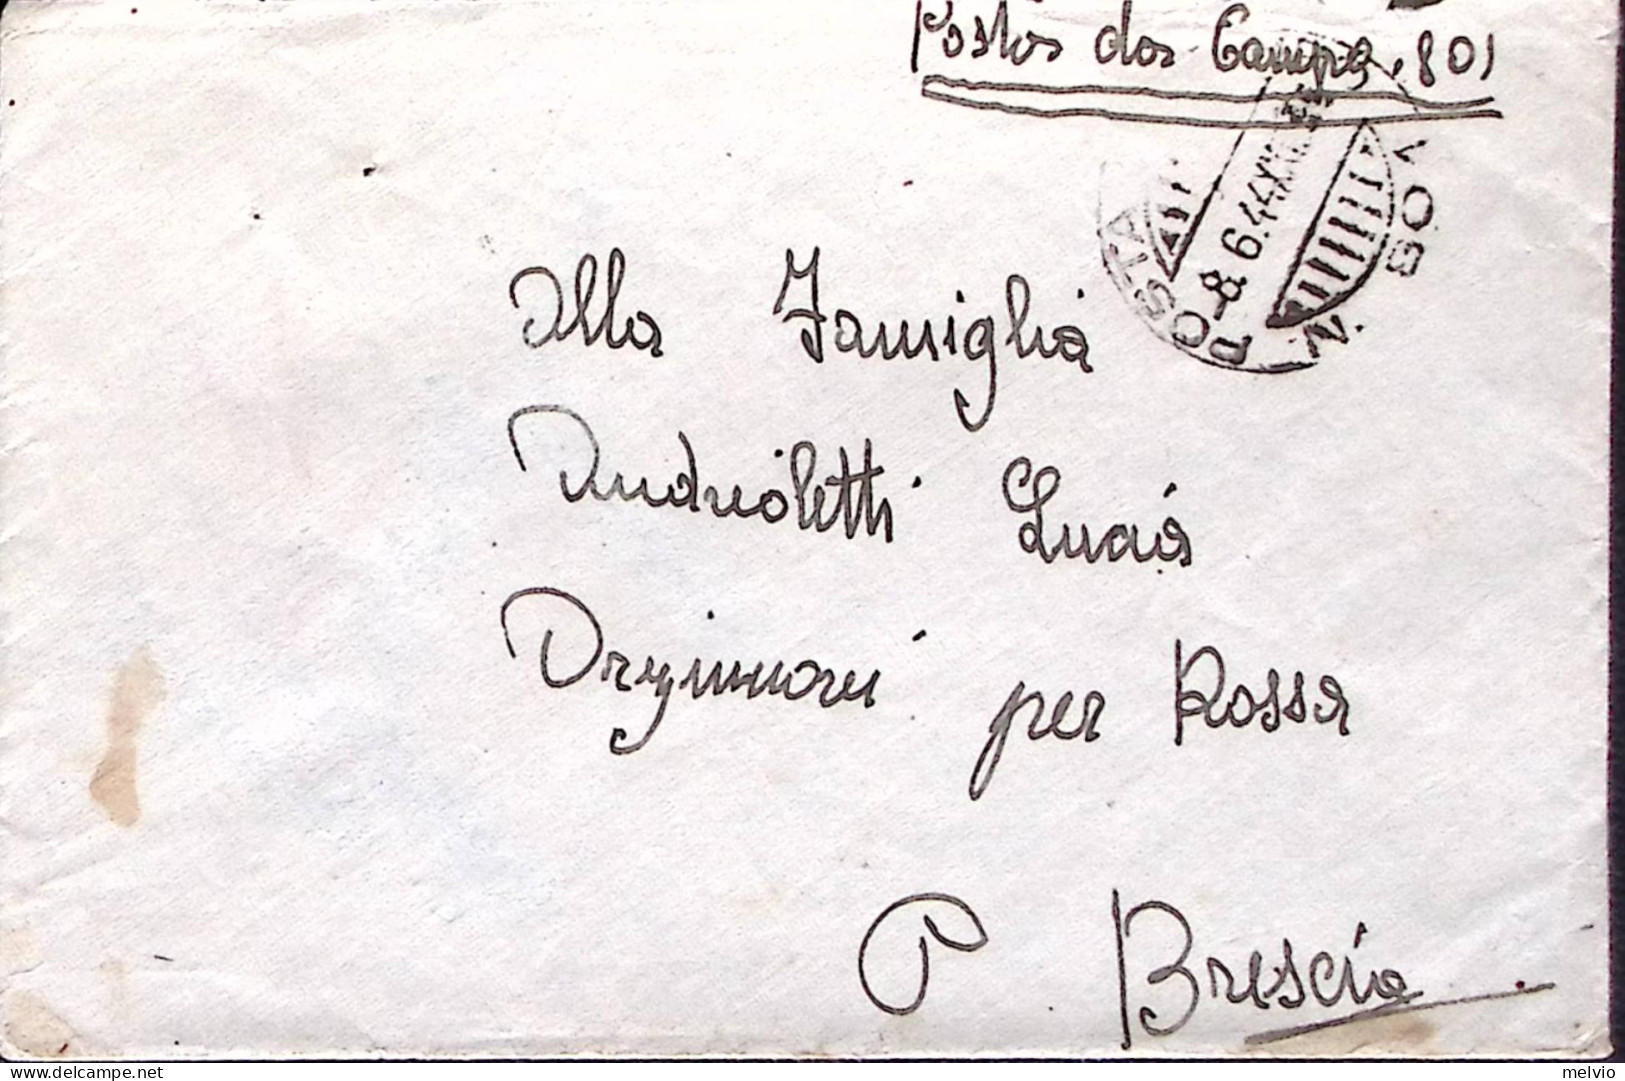 Posta da Campo 801
POSTA N. 801
-8.6.44XXII
Alla Famiglia
Andreoletti Lucia
Orzinuovi per Rossa
P Brescia
delcampe.net
melvio